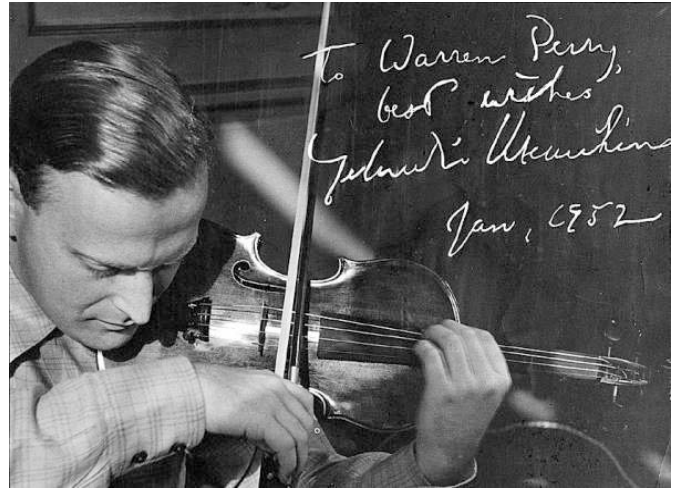 To Warren Perry,
best wishes
Yehudi Menuhin
Jan, 1952